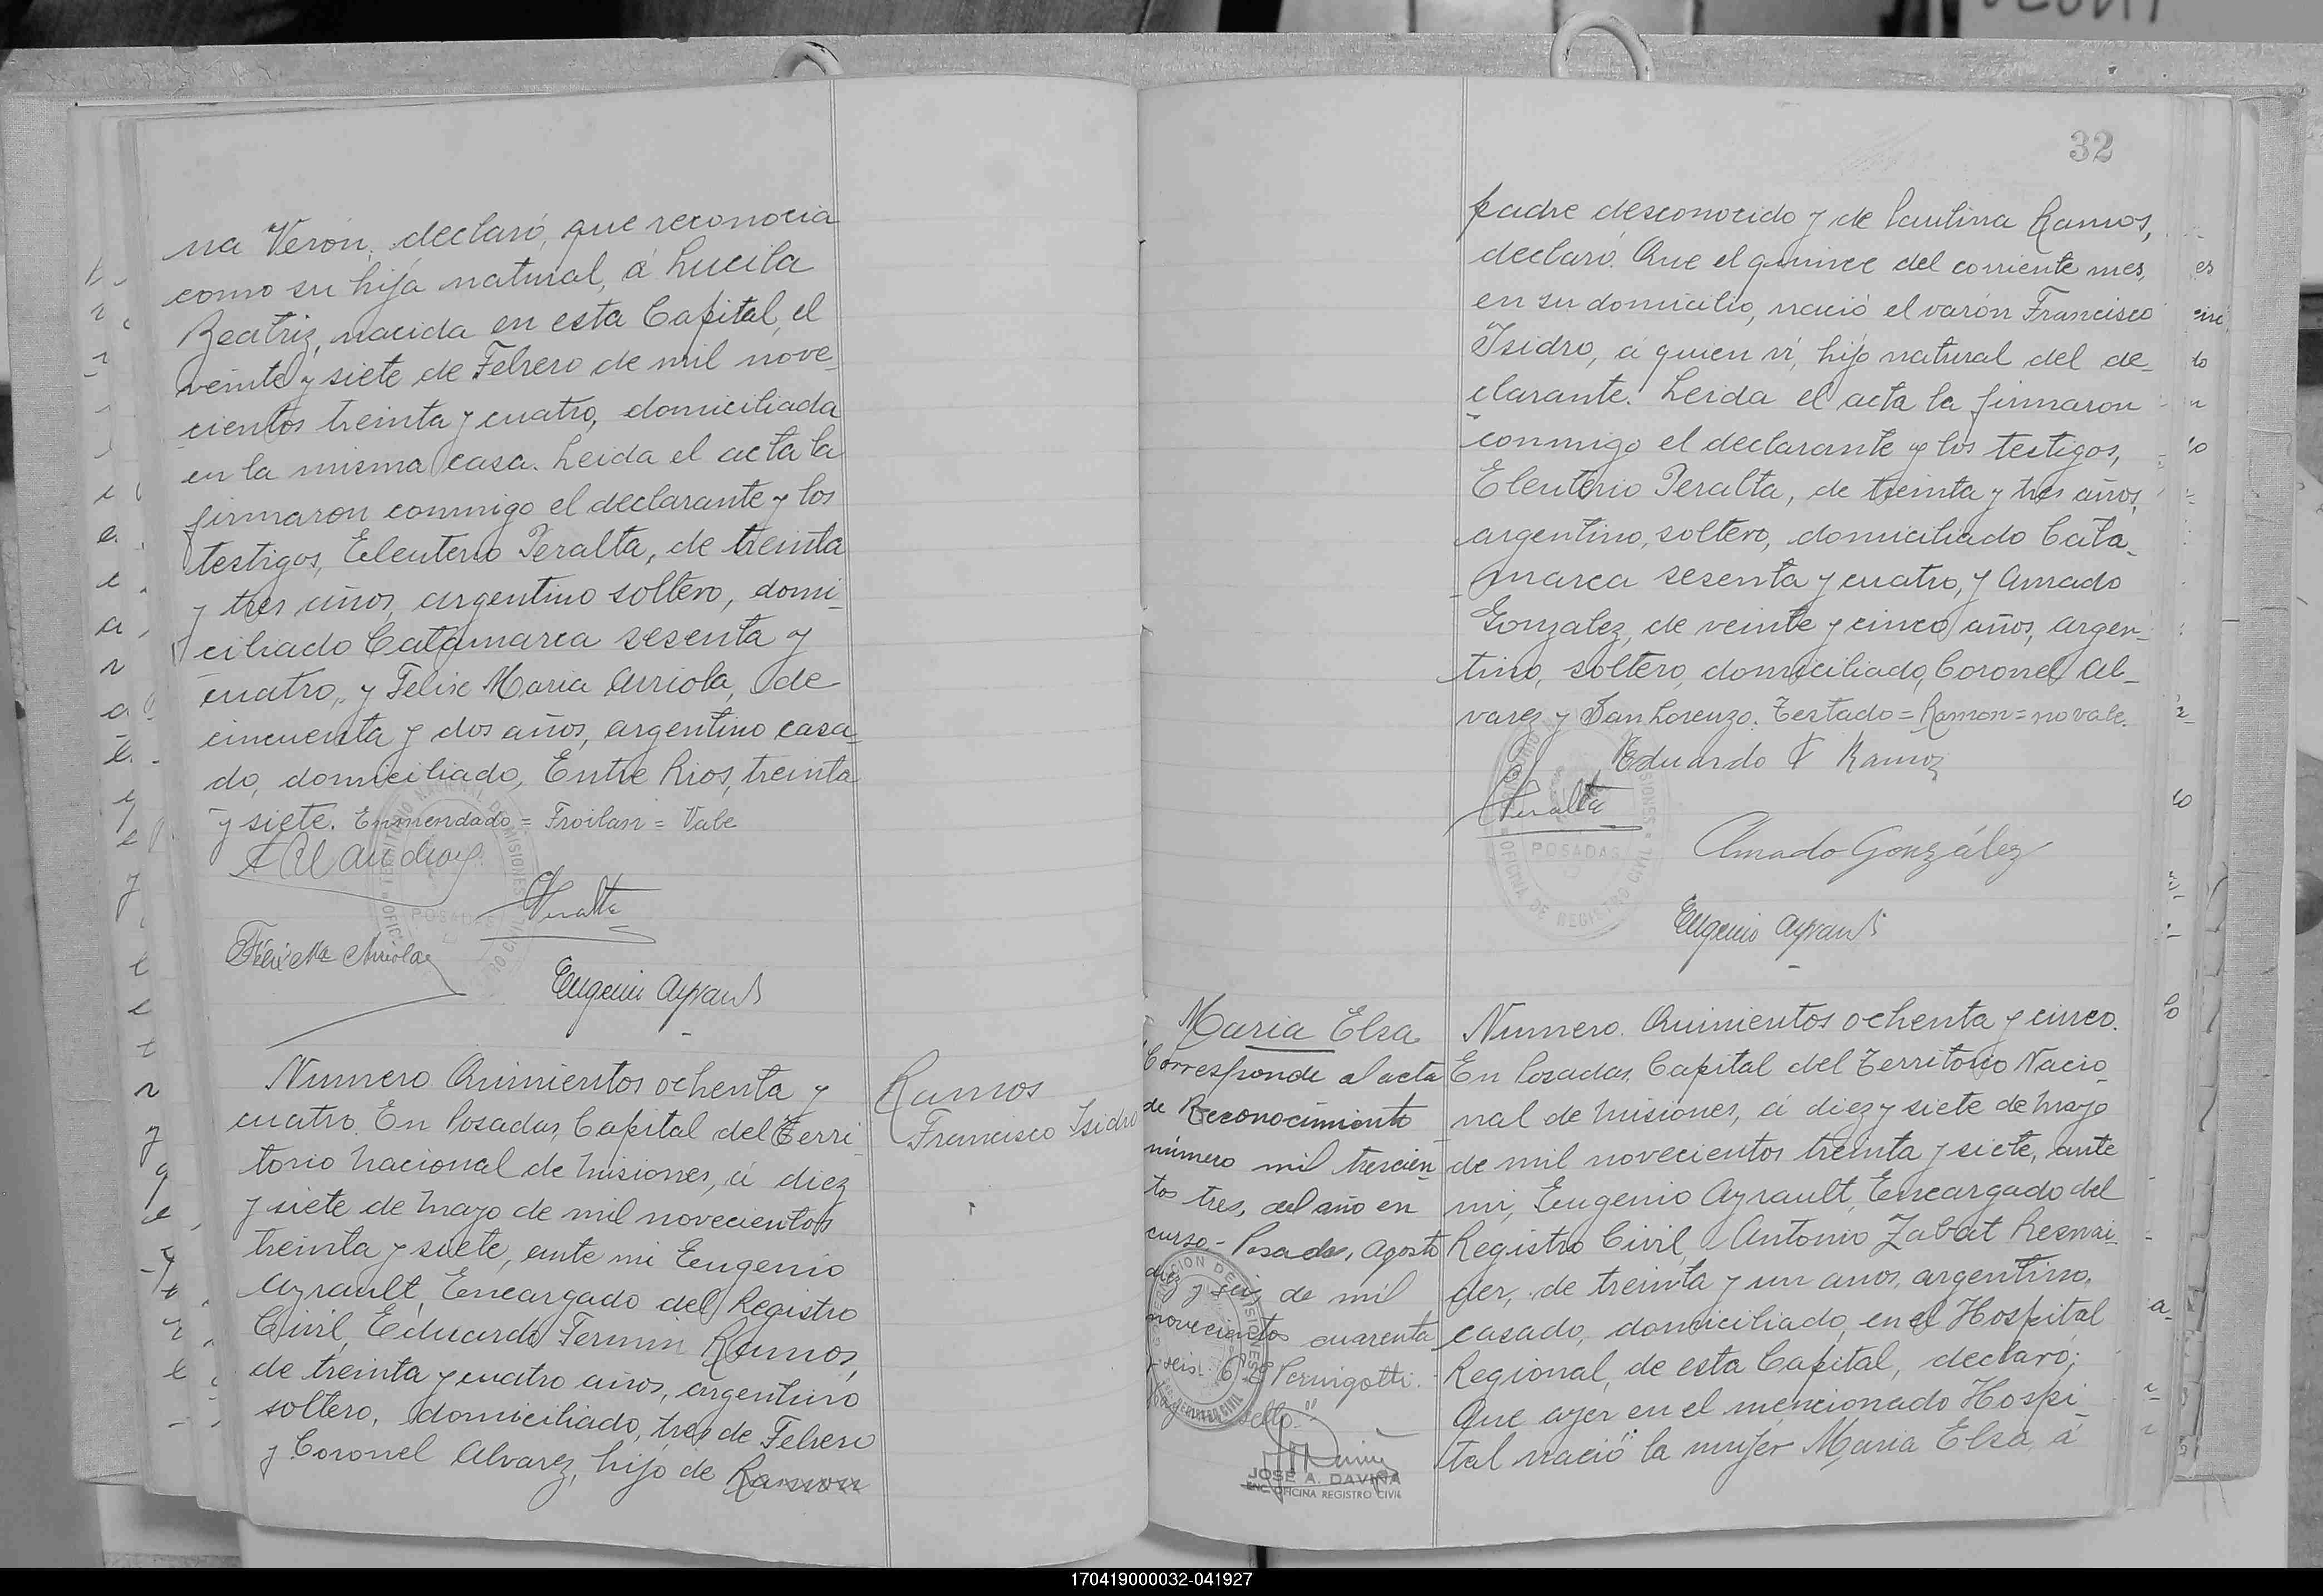 na Verón, declaró, que reconocia
como su hija natural, á Lucila
Beatriz, nacida en esta Capital, el
veinte y siete de Febrero de mil nove_
cientos treinta y cuatro, domiciliada
en la misma casa. Leida el acta la
firmaron conmigo el declarante y los
testigos, Eleuterio Peralta, de treinta
y tres años, argentino soltero, domi_
ciliado Catamarca sesenta y
cuatro, y Felix Maria Arriola, de
cincuenta y dos años, argentino casa_
do, domiciliado, Entre Rios, treinta
y siete. Enmendado = Froilan = Vale
Peralta
Félix Ma Arriola
Eugenio Ayrault
Ramos
Francisco Isidro
Numero. Quinientos ochenta y
cuatro. En Posadas, Capital del Terri_
torio Nacional de Misiones, á diez
y siete de Mayo de mil novecientos
treinta y siete, ante mi Eugenio
Ayrault, Encargado del Registro
Civil, Eduardo Fermin Ramos,
de treinta y cuatro años, argentino
soltero, domiciliado, tres de Febrero
y Coronel Alvarez, hijo de Ramon
32
padre desconocido y de Paulina Ramos,
declaró. Que el quince del corriente mes,
en su domicilio, nació el varón Francisco
Isidro, á quien ví, hijo natural del de_
clarante. Leida el acta la firmaron
conmigo el declarante y los testigos,
Eleuterio Peralta, de treinta y tres años,
argentino, soltero, domiciliado Cata_
marca sesenta y cuatro, y Amado
Gonzalez, de veinte y cinco años, argen_
tino, soltero, domiciliado, Coronel Al_
varez y San Lorenzo. Testado = Ramon = no vale.
Eduardo F Ramos
Peralta
POSADAS
OFICINA DE REGISTRO CIVIL
Amado González
Eugenio Ayrault
Maria Elsa
Corresponde al acta
de Reconocimiento
número mil trescien_
tos tres, del año en
curso - Posadas, Agosto
diez y seis de mil
novecientos cuarenta
y seis. Pernigotti.
sello."
JOSÉ A. DAVIÑA
ENC. OFICINA REGISTRO CIVIL
Numero. Quinientos ochenta y cinco.
En Posadas, Capital del Territorio Nacio_
nal de Misiones, á diez y siete de Mayo
de mil novecientos treinta y siete, ante
mi, Eugenio Ayrault, Encargado del
Registro Civil, Antonio Zabat Resnai_
der, de treinta y un años, argentino,
casado, domiciliado, en el Hospital
Regional, de esta Capital, declaró;
Que ayer en el mencionado Hospi_
tal nació la mujer Maria Elsa, á
170419000032-041927